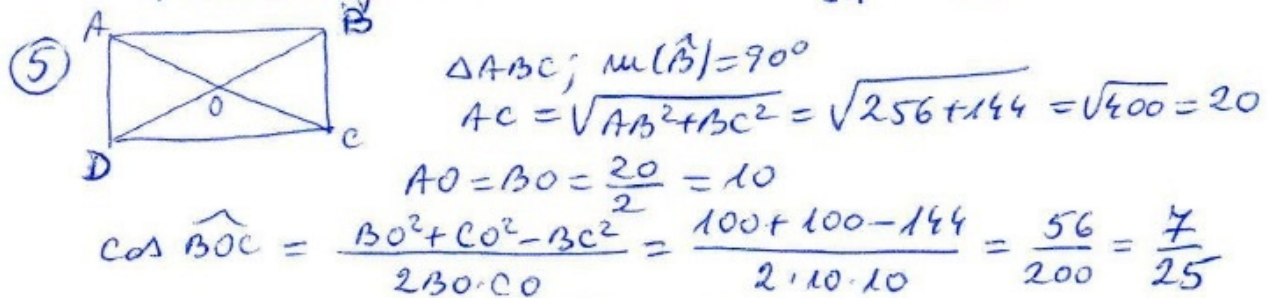 ⑤ A B O D C
ΔABC; m(B̂)=90°
AC = √(AB²+BC²) = √(256+144) = √400 = 20
AO = BO = 20/2 = 10
cos BOC^ = (BO²+CO²-BC²)/(2BO·CO) = (100+100-144)/(2·10·10) = 56/200 = 7/25